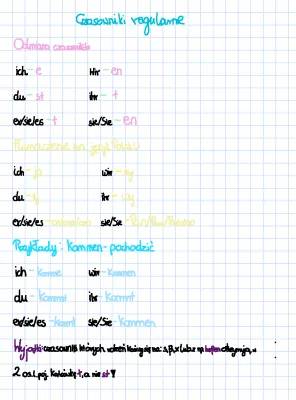 Czasowniki regularne
Odmiana czasownika
ich - e wir - en
du - st ihr - t
er/sie/es - t sie/Sie - en
Tłumaczenie na język Polski
ich - ja wir - my
du - ty ihr - wy
er/sie/es - on/ona/ono sie/Sie - Pan/Pani/Państwo
Przykłady: Kommen - pochodzić
ich - komme wir - kommen
du - kommst ihr - kommt
er/sie/es - komt sie/Sie - kommen
Wyjątki czasowniki których się na: s, ß, x lub z na w
2 os. l. poj. końcówkę t, a nie st